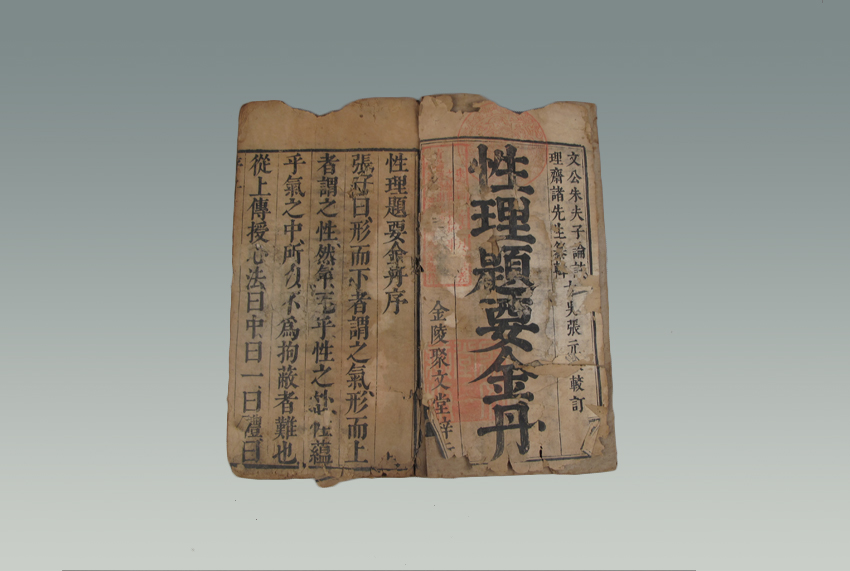 文公朱夫子論
理齋諸先生纂輯 吳張元 較訂
性理題要金丹
金陵聚文堂梓
性理題要金丹序
張子曰形而下者謂之氣形而上
者謂之性然 乎性之 性蘊
乎氣之中所以不爲拘蔽者難也
從上傳授心法曰中曰一曰禮曰